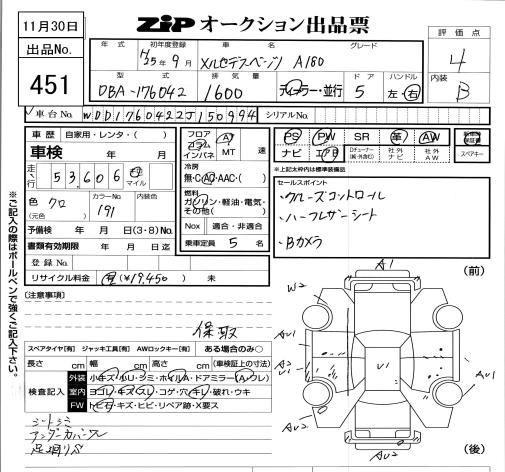 11月30日
ZIP オークション出品票
出品No.
451
評価点
4
内装
B
年式 初年度登録 車名 グレード
H25年9月 メルセデスベンツ A180
型式 排気量 ドア ハンドル
DBA-176042 1600 ディーラー・並行 5 左・右
車台No. WDD1760422J150994 シリアルNo.
車歴 自家用・レンタ・( )
車検 年 月
走行 53,606 km マイル
色 クロ カラーNo. 191
(元色)
予備検 年 月 日(3・8)No.
書類有効期限 年 月 日迄
登録No.
リサイクル料金 有(¥19,450) 未
フロア コラム インパネ AT MT 速
冷房
無・C・AC・AAC・( )
燃料
ガソリン・軽油・電気・その他( )
Nox 適合・非適合
乗車定員 5 名
PS PW SR 革 AW
ナビ エアB 社外ナビ 社外AW
新車時保証書
スペアキー
※上記太枠内は標準装備品
セールスポイント
・クルーズコントロール
・ハーフレザーシート
・Bカメラ
※ご記入の際はボールペンで強くご記入下さい。
(注意事項)
保取
スペアタイヤ【有】 ジャッキ工具【有】 AWロックキー【有】 ある場合のみ○
長さ cm 幅 cm 高さ cm (車検証上の寸法)
検査記入
外装 小キズ・小U・シミ・ホイルA・ドアミラー(A・クレ)
室内 ヨゴレ・キズ・スレ・コゲ・穴・キレ・破れ・ウキ
FW トビ石・キズ・ヒビ・リペア跡・X要ス
シートシミ
アンダーカバーズレ
足廻りサビ
(前)
A1
W2
AU1
A2
U1
U1
AU1
AU2
AU2
(後)